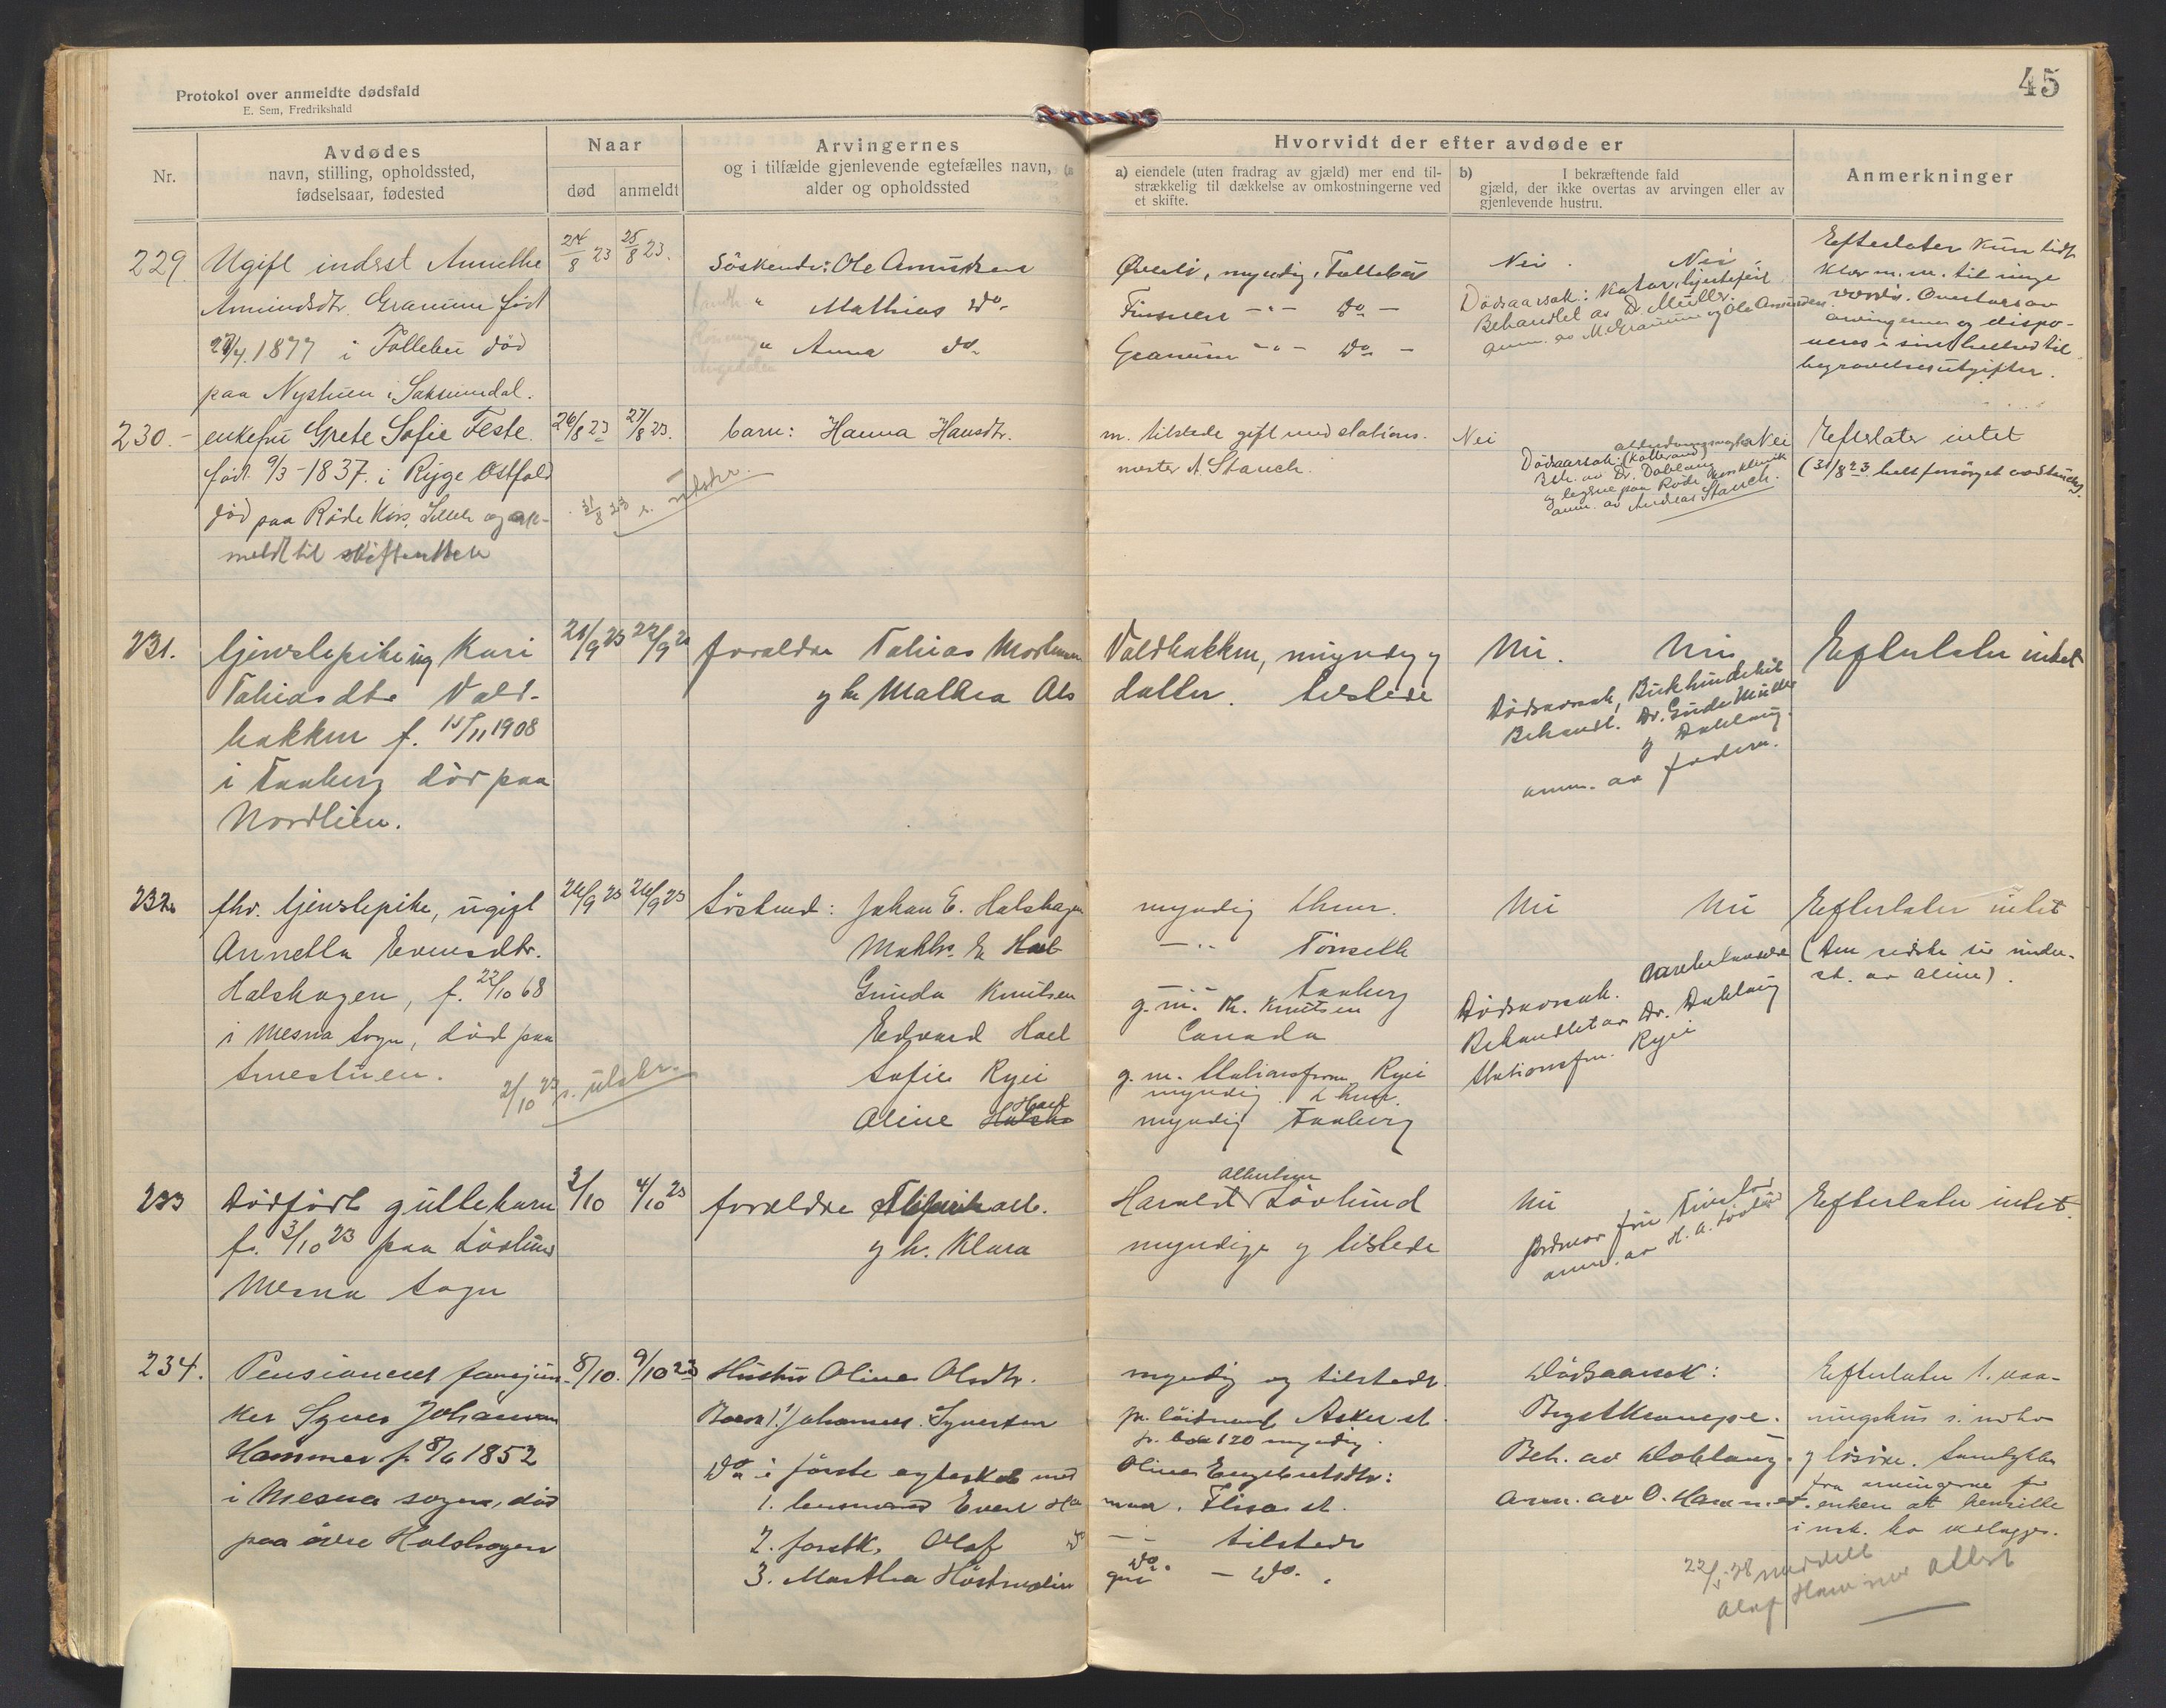 45
Protokol over anmeldte dødsfald
E. Sem, Fredrikshald
Nr.
Avdødes
navn, stilling, opholdssted,
fødselsaar, fødested
Naar
død
anmeldt
Arvingernes
og i tilfælde gjenlevende egtefælles navn,
alder og opholdssted
Hvorvidt der efter avdøde er
a) eiendele (uten fradrag av gjæld) mer end til-
strækkelig til dækkelse av omkostningerne ved
et skifte.
b) I bekræftende fald
gjæld, der ikke overtas av arvingen eller av
gjenlevende hustru.
Anmerkninger
229.
Ugift inderst Annethe
Amundsdtr. Granum født
1877 i Follebu død
paa Nystuen i Saksumdal.
24/8 23
25/8 23.
Söskende: Ole Amundsen
" Mathias do.
" Anna do.
Överli, myndig, Follebu
Finsveen -"- do -
Granum -"- do -
Nei. Nei.
Dødsaarsak: Katar, hjertefeil
Behandlet av Dr. Müller.
anm. av M. Granum og Ole Amundsen
Efterlater kun lidt
klær m.m. til ringe
værdi. Overtas av
arvingerne og dispo-
neres i sin helhed til
begravelsesutgifter.
230.-
enkefru Grete Sofie Feste
født 9/3-1837. i Rygge Østfold
död paa Röde Kors, Lilleh og an-
meldt til skifteretten
26/8 23
27/8 23.
31/8 23 s. utskr.
barn: Hanna Hansdtr.
m. tilstede gift med stations-
mester A. Stauch.
Nei
Nei
Dödsaarsak:
Beh. av Dr. Doblaug
og lægerne paa Röde Kors klinik
anm. av Andreas Stauch.
Efterlater intet
(31/8 23
231.
tjenestepike ug Kari
Tobiasdtr Vold-
bakken f. 15/11 1908
i Faaberg död paa
Nordlien.
21/9 23
22/9 23
forældre Tobias Mortensen
og h. Mathea Ols
Voldbakken, myndig og
datter. tilstede
Nei.
Nei
Dödsaarsak, Bukhindebet
Behandl. Dr. Gude Müller
og Doblaug.
anm. av faderen.
Efterlater intet
232.
fhv. tjenestepike, ugift
Annetta Evensdtr.
Halshagen, f. 22/10 68
i Mesna Sogn, död paa
Smestuen.
24/9 23
26/9 23
2/10 23 s. utskr.
Söskend: Johan E. Halshagen
Maths. E Hael
Gunda Knutsen
Edvard Hael
Sofie Ryei
Aline Hael
myndig Lhmr.
-"- Tönseth
-"- Faaberg
g. m. Th. Knutsen
Canada
g. m. Stationsform Ryei
myndig. Lhmr.
myndig Faaberg
Nei
Nei
Dödsaarsak.
Behandlet av Dr. Doblaug
Stationsfm. Ryei
Efterlater intet
(Den sidste tid under-
st. av Aline).
233
Dödfödt guttebarn
f. 3/10 23 paa Lövlund
Mesna Sogn
3/10
4/10 23
forældre
og h. Klara
Harald Albertsen Lövlund
myndige og tilstede
Nei
Jordmor fru
anm. av H. A. Lövlund
Efterlater intet.
234.
Pensioneret fanejun-
ker Syver Johansen
Hammer f. 8/6 1852
i Mesna sogn, död
paa övre Halshagen
8/10.
9/10 23
Hustru Oline Olsdtr.
Barn 1. Johannes Syversen
Do i förste egteskab med
1. lensmand Evert Ha
2. forstk. Olaf do
3. Martha Höstmælin
myndig og tilstede.
pr. löitnant Asker st.
p. box 120 myndig.
Oline Engebretsdtr:
mynd. Elisa st.
-"- tilstede
do
- do.
Dödsaarsak:
Brystkrampe.
Beh. av Doblaug.
Anm. av O. Hammer.
Efterlater 1. vaa-
ningshus s. m. tom
og lösöre. Samtykke
fra arvingerne for
enken at hensitte
i usk. bo vedlagges.
22/5-28 meddelt
Olaf Hammer attest